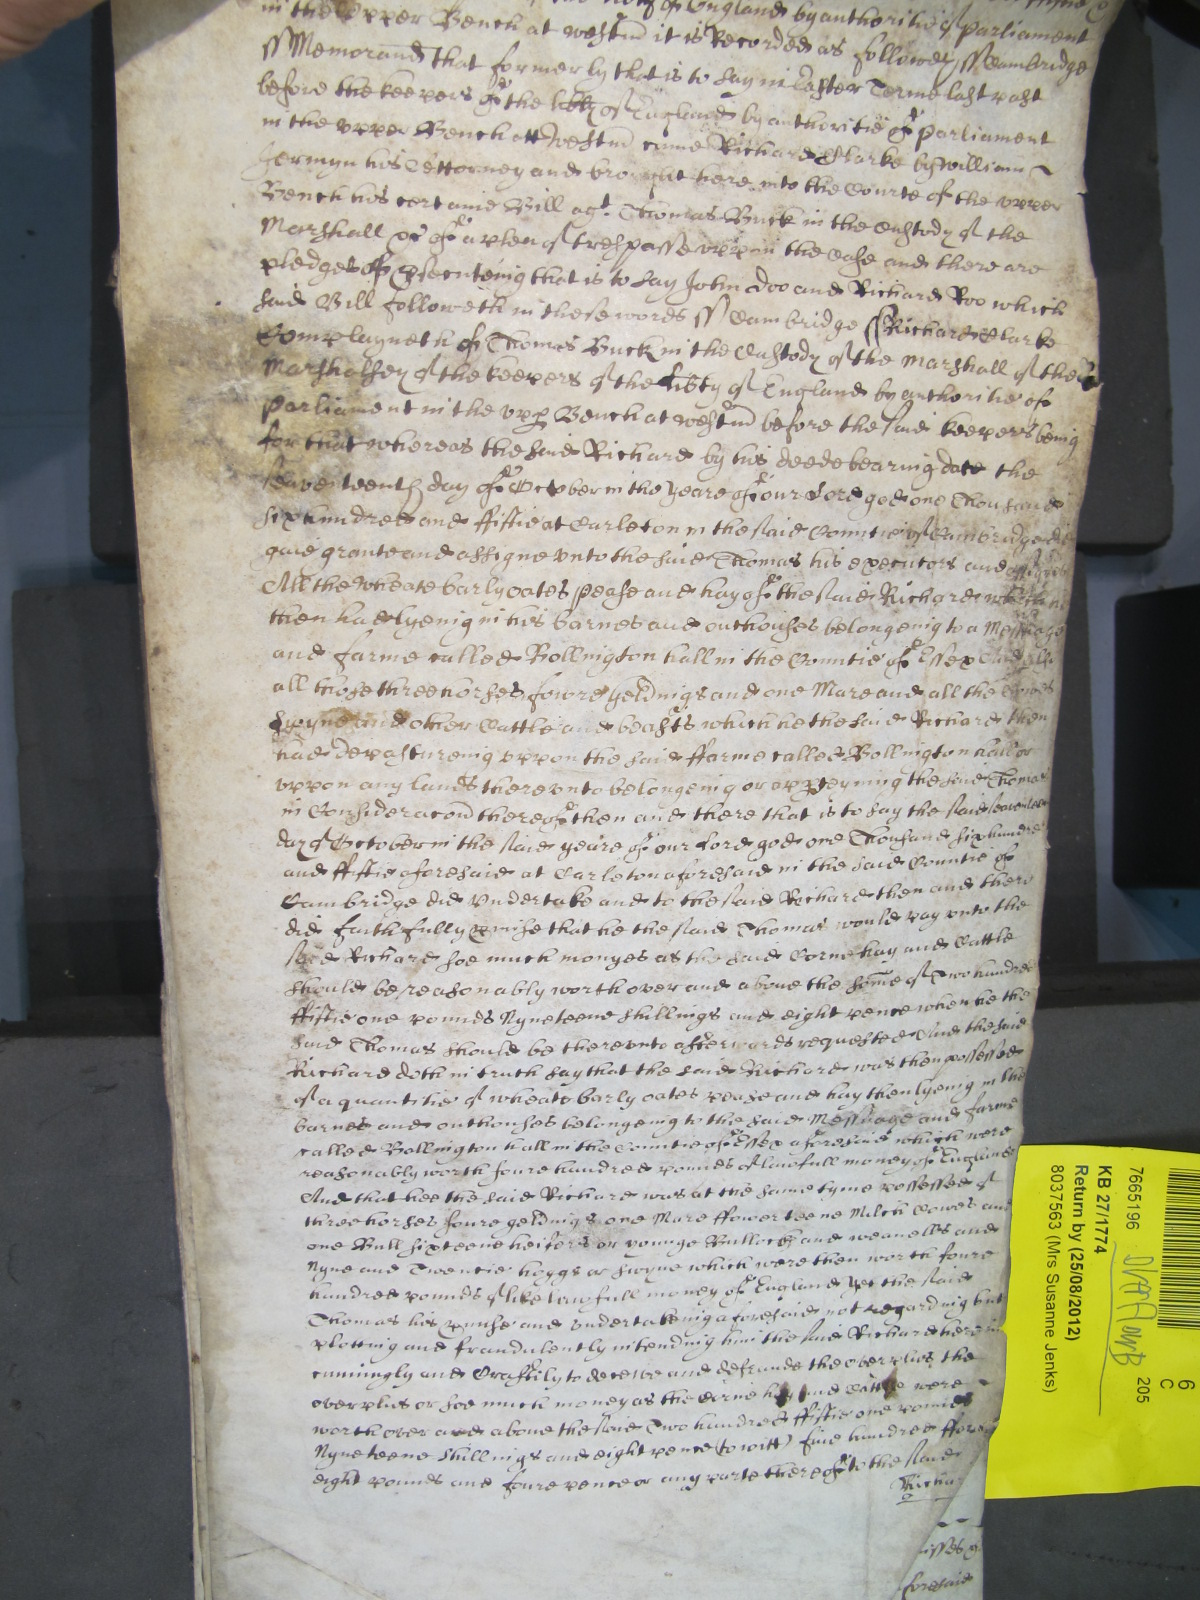 of England by authoritie of Parliament
in the upper Bench at Westm̃ it is Recorded as followeth ss Cambridge
ss Memorand that formerly that is to say in Easter Terme last past
before the keepers of the libty of England by authoritie of Parliament
in the upper Bench att Westm̃ came Richard Clarke by William
Jermyn his Attorney and brought here into the Courte of the upper
Bench his certaine Bill agt Thomas Buck in the Custody of the
Marshall &c of a plea of trespasse uppon the Case and there are
pledges of psecuteinig that is to say John Doo and Richard Roo which
said Bill followeth in these words ss Cambridge ss Richard Clarke
Complayneth of Thomas Buck in the Custody of the Marshall of the
Marshalsey of the keepers of the libty of England by authoritie of
Parliament in the upp Bench at Westm̃ before the said keepers being
for that whereas the said Richard by his deede bearing date the
seaventeenth day of October in the yeare of our Lord god one Thousand
six hundred and ffiftie at Carleton in the said Countie of Cambridge did
give grante and assigne unto the said Thomas his executors and assignes
All the Wheate barly oates pease and hay of the said Richard which he
then had lyeing in his barnes and outhouses belongeing to a Messuage
and farme called Bollington hall in the Countie of Essex And also
all those three horses foure geldings and one Mare and all the Cowes
Swyne and other Cattle and beasts which he the said Richard then
had depastureinig uppon the said ffarme called Bollington hall or
uppon any lands thereunto belongeing or apperteyning the said Thomas
in Consideracon thereof then and there that is to say the said seaventeen
day of October in the said yeare of our Lord god one Thousand six hundred
and ffiftie aforesaid at Carleton aforesaid in the said Countie of
Cambridge did undertake and to the said Richard then and there
did faithfully pmise that he the said Thomas would pay unto the
said Richard soe much monyes as the said Corne hay and Cattle
should be reasonably worth over and above the some of Two hundred
ffiftie one pounds Nyneteene shillings and eight pence when he the
said Thomas should be thereunto afterwards requested And the said
Richard doth in truth say that the said Richard was then possessed
of a quantitie of wheate barly oates pease and hay then lyeing in the
barnes and outhouses belongeing to the said Messuage and farme
called Bollington hall in the Countie of Essex aforesaid which were
reasonably worth foure hundred pounds of lawfull money of England
And that hee the said Richard was at the same tyme possessed of
three horses foure geldings one Mare ffowerteene Milch Cowes and
one Bull sixteene heifers or younge Bullocks and weanells and
Nyne and Twentie hoggs or swyne which were then worth foure
hundred pounds of like lawfull money of England Yet the said
Thomas his pmise and undertakeing aforesaid not regarding but
plotting and fraudulently intending him the said Richard herein
cunningly and Craftily to deceive and defraude the overplus the
overplus or soe much money as the Corne hay and Cattle were
worth over and above the said Two hundred ffiftie one pounds
Nyneteene shillings and eight pence (to witt) five hundred ffortie
eight pounds and foure pence or any parte thereof to the said
Richar
foresaid
7665196
KB 27/1774
Return by (25/08/2012)
8037563 (Mrs Susanne Jenks)
205
6
C